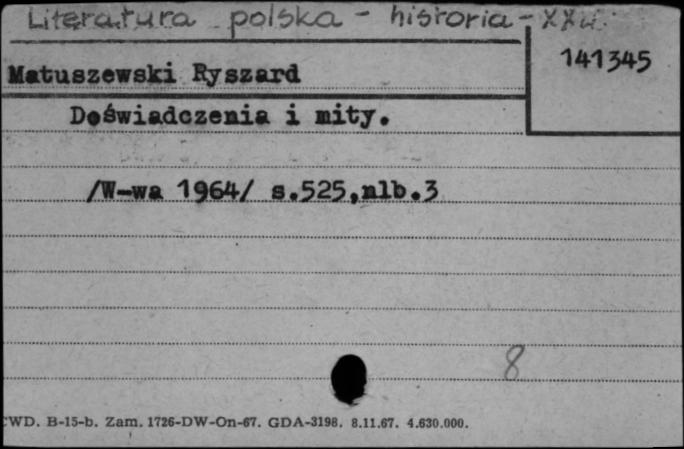 Literatura polska - historia - XXw.
141345
Matuszewski Ryszard
Doświadczenia i mity.
/W-wa 1964/ s.525,nlb.3
8
CWD. B-15-b. Zam. 1726-DW-On-67. GDA-3198. 8.11.67. 4.630.000.